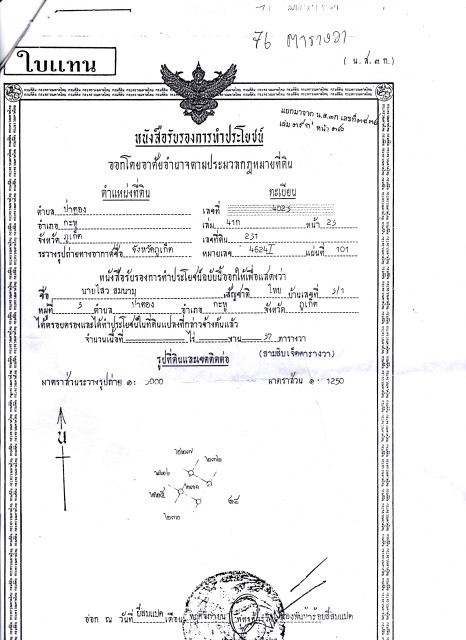 76 ตารางวา
(น.ส.๓ ก.)
ใบแทน
แยกมาจาก น.ส.๓ก เลขที่
เล่ม หน้า
หนังสือรับรองการทำประโยชน์
ออกโดยอาศัยอำนาจตามประมวลกฎหมายที่ดิน
ตำแหน่งที่ดิน ทะเบียน
ตำบล ป่าตอง เลขที่ 4023
อำเภอ กะทู้ เล่ม 41ก หน้า 23
จังหวัด ภูเก็ต เลขที่ดิน 231
ระวางรูปถ่ายทางอากาศชื่อ จังหวัดภูเก็ต หมายเลข 4624 I แผ่นที่ 101
หนังสือรับรองการทำประโยชน์ฉบับนี้ออกให้เพื่อแสดงว่า
ชื่อ นายไสว สมบาบุ สัญชาติ ไทย บ้านเลขที่ 3/1
หมู่ที่ 3 ตำบล ป่าตอง อำเภอ กะทู้ จังหวัด ภูเก็ต
ได้ครอบครองและได้ทำประโยชน์ในที่ดินแปลงที่กล่าวข้างต้นแล้ว
จำนวนเนื้อที่ - ไร่ - งาน 37 ตารางวา
รูปที่ดินและเขตติดต่อ (สามสิบเจ็ดตารางวา)
มาตราส่วนระวางรูปถ่าย ๑: 5000 มาตราส่วน ๑: 1250
น
๒๓๐
๘๔
ออก ณ วันที่ ยี่สิบแปด เดือน